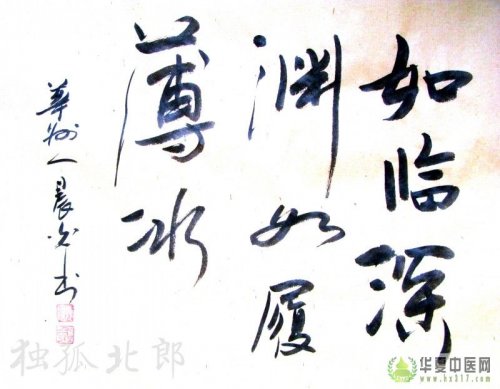 如临深
渊如履
薄冰
華州人晨光书
独孤北郎
华夏中医网
www.hx317.com